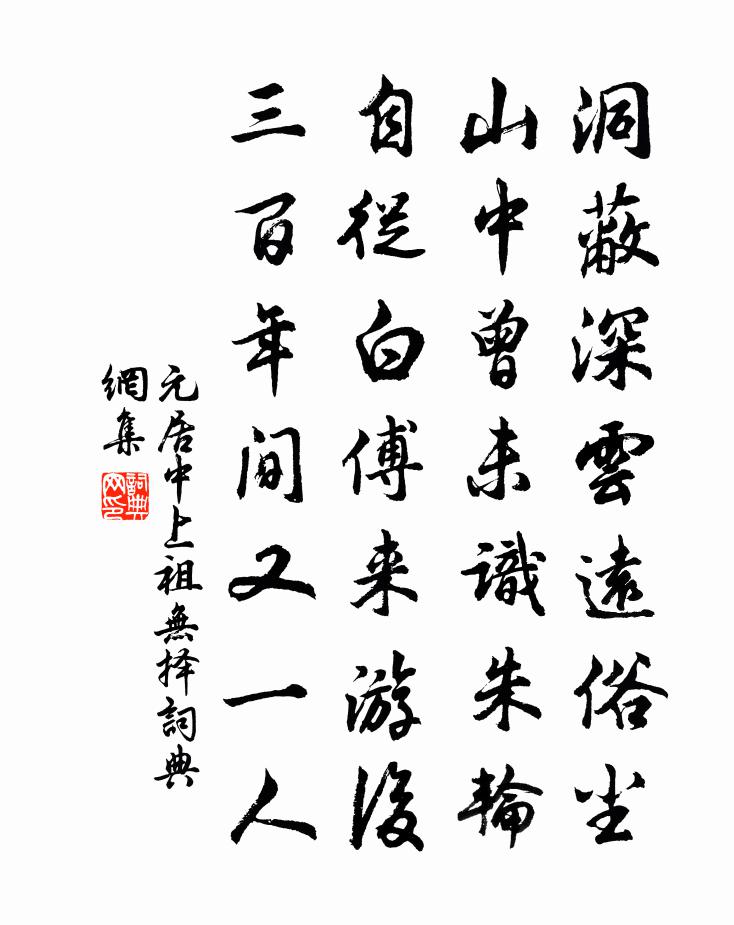 洞蔽深雲遠俗尘
山中曾未識朱輪
自從白傅来游後
三百年间又一人
元居中上祖無择詞典
網集
詞典网印